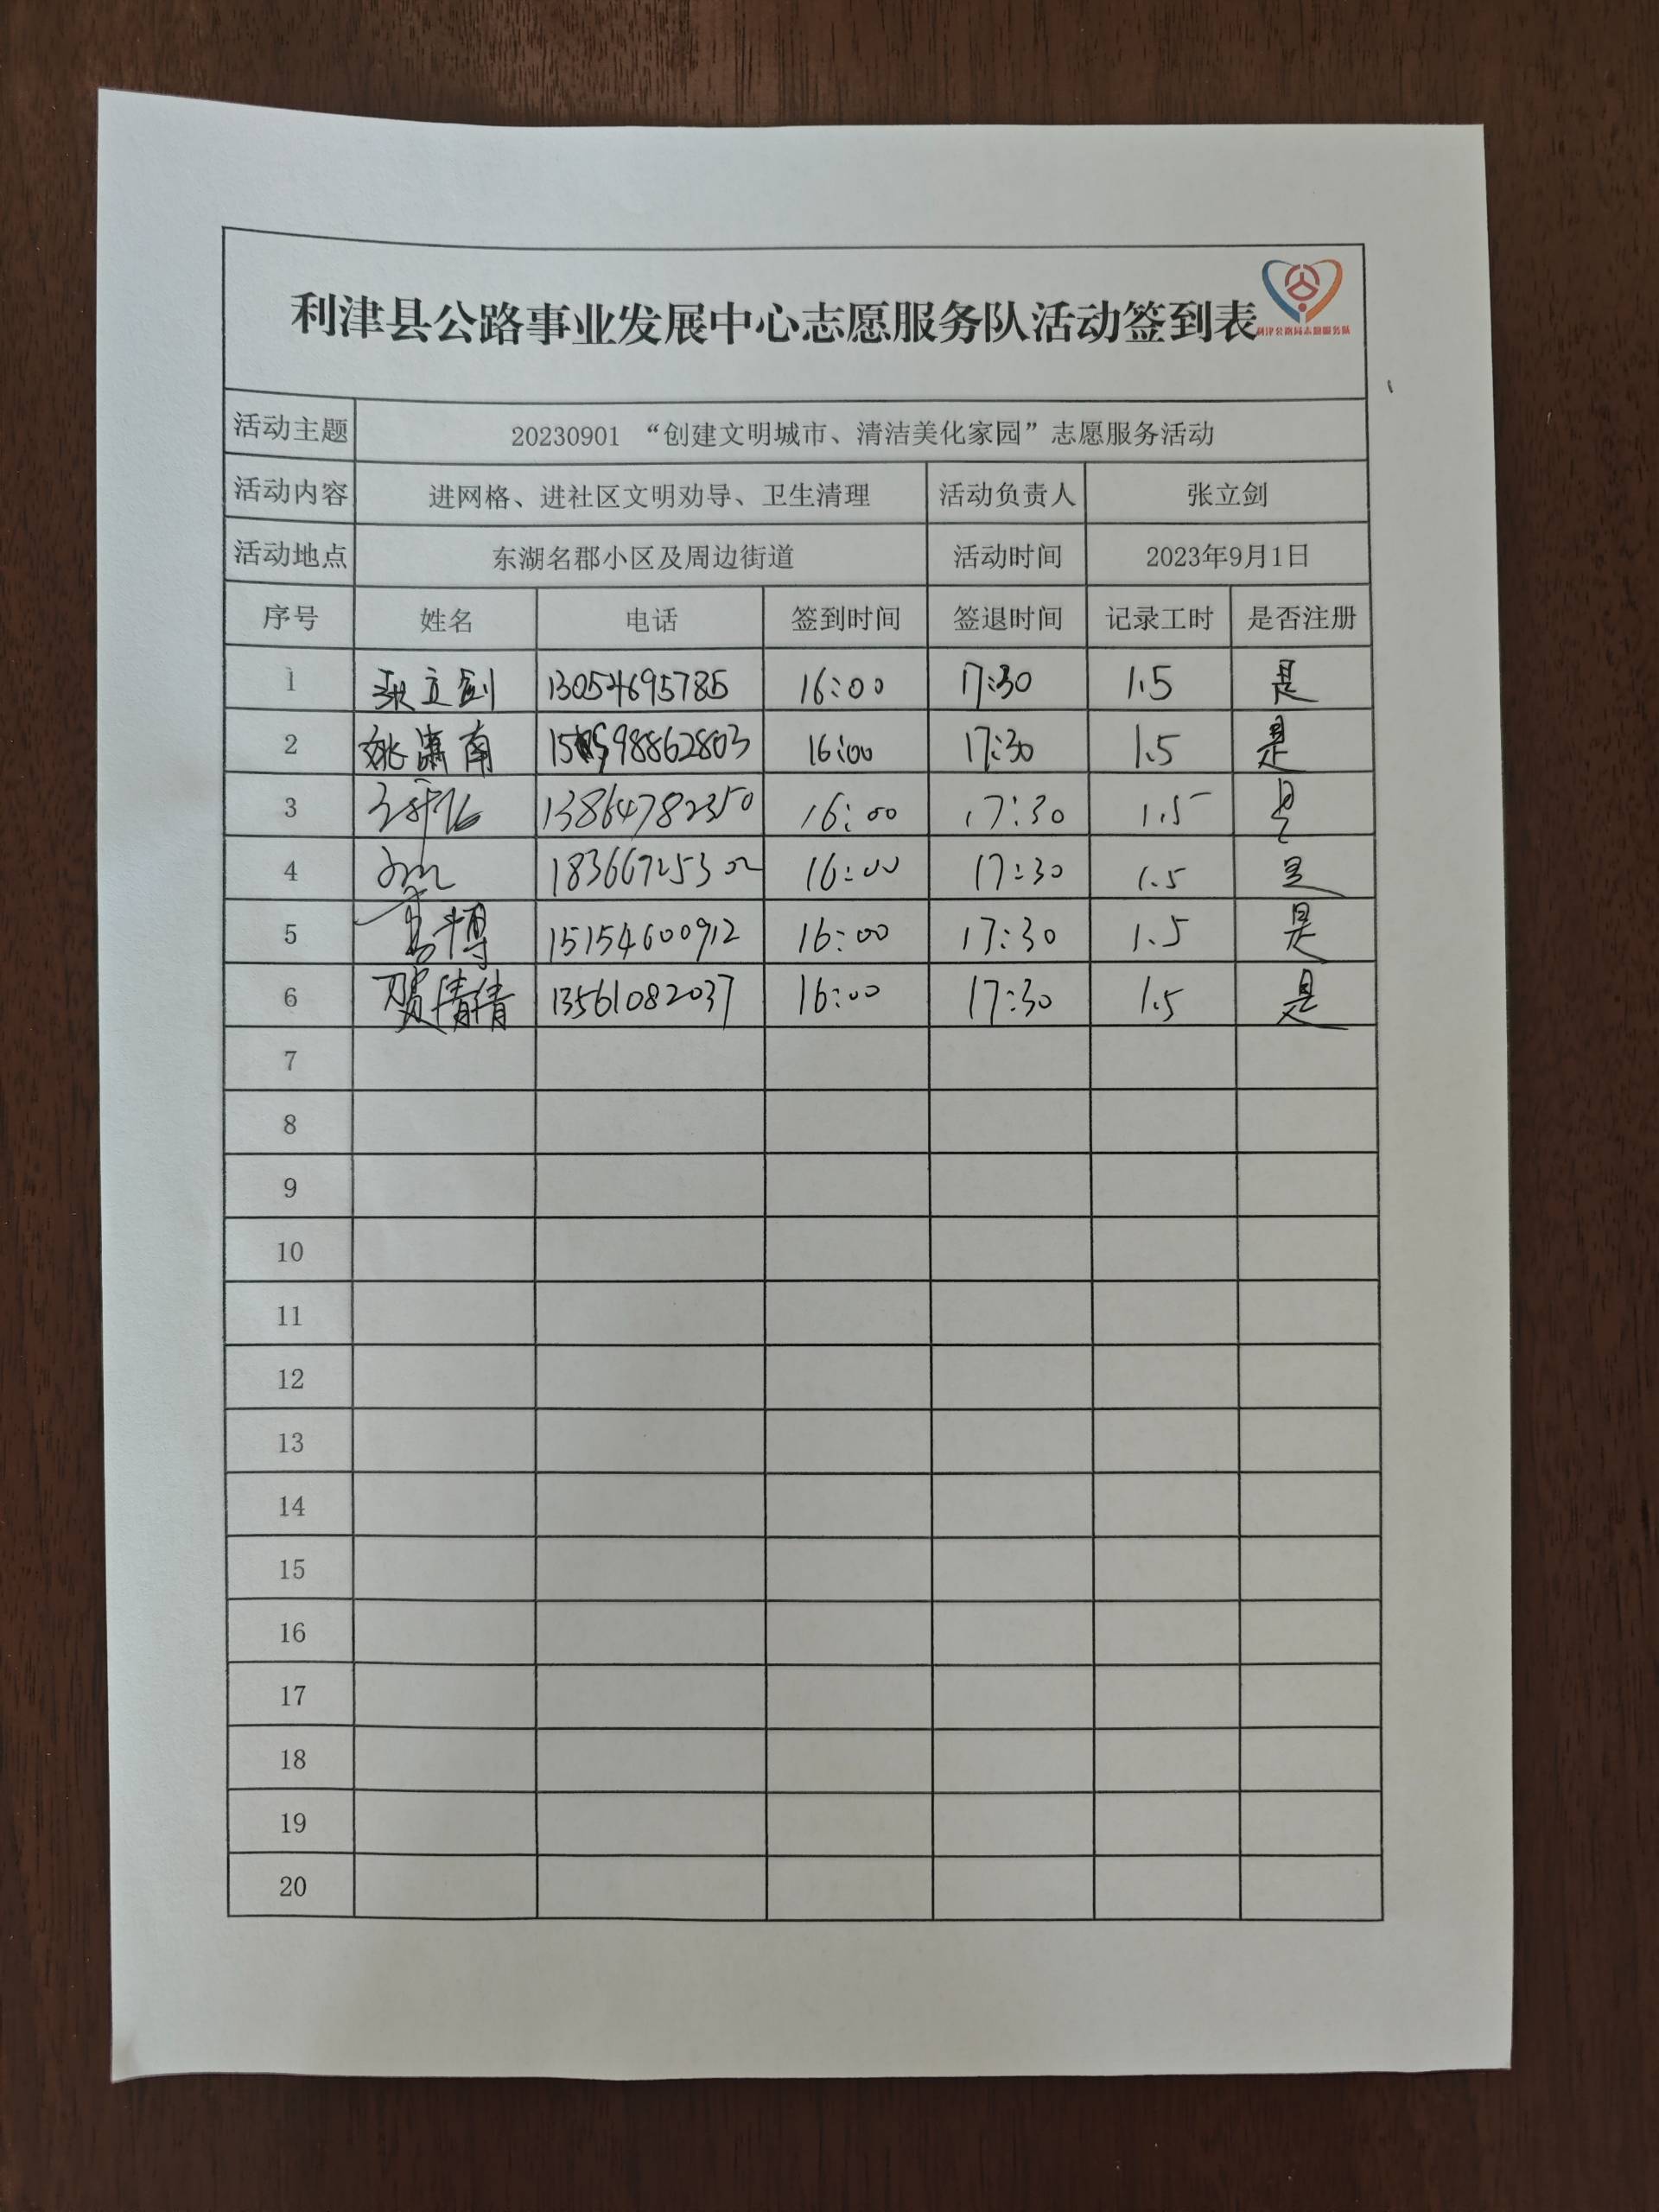 利津县公路事业发展中心志愿服务队活动签到表
利津公路局志愿服务队
活动主题 20230901 “创建文明城市、清洁美化家园”志愿服务活动
活动内容 进网格、进社区文明劝导、卫生清理 活动负责人 张立剑
活动地点 东湖名郡小区及周边街道 活动时间 2023年9月1日
序号 姓名 电话 签到时间 签退时间 记录工时 是否注册
1 张立剑 13054695785 16:00 17:30 1.5 是
2 姚潇南 16:00 17:30 1.5 是
3 13864782350 16:00 17:30 1.5 是
4 18366725302 16:00 17:30 1.5 是
5 博 15154600912 16:00 17:30 1.5 是
6 贺倩倩 13561082037 16:00 17:30 1.5 是
7
8
9
10
11
12
13
14
15
16
17
18
19
20